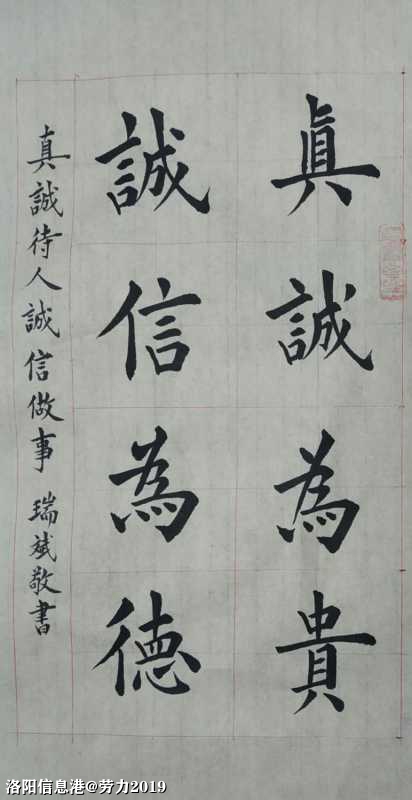 真誠為貴
誠信為德
真誠待人誠信做事 瑞斌敬書
洛阳信息港@劳力2019